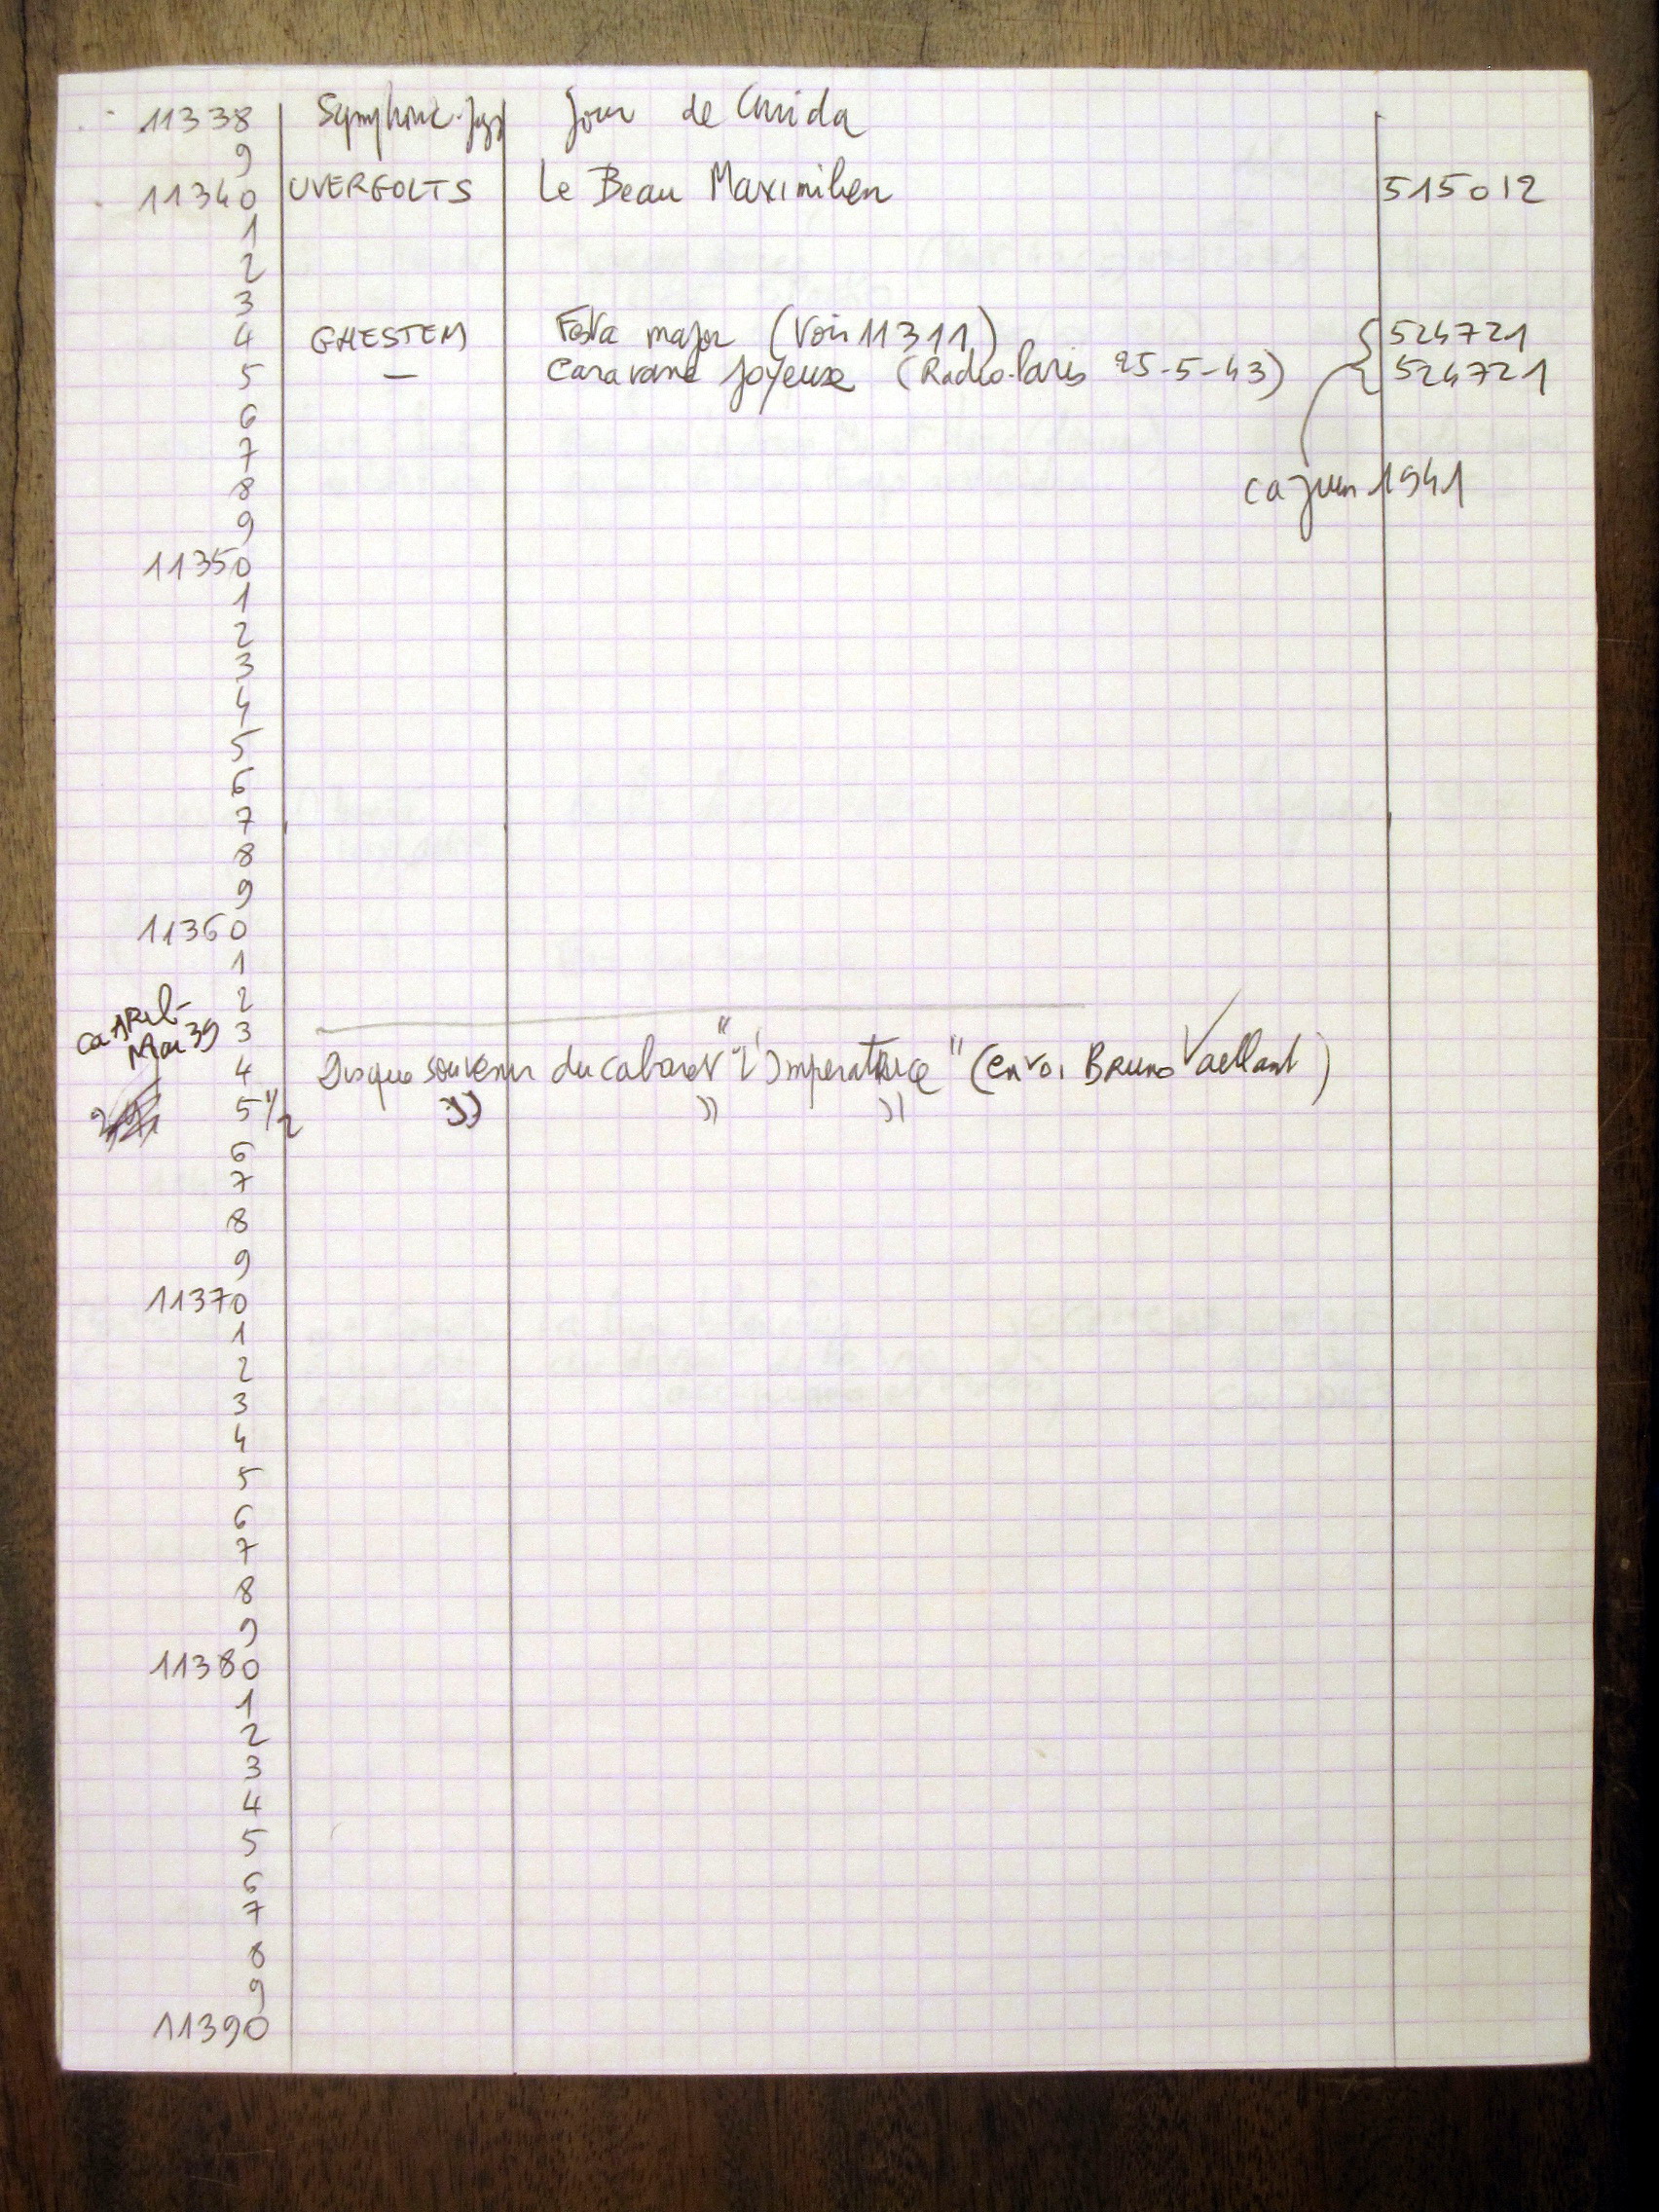 11338 Symphonic-Jazz Jour de
9
11340 UVERGOLTS Le Beau Maximilien 515012
1
2
3
4 GHESTEM Festa major (Voir 11311) 524721
5 — Caravane joyeuse (Radio-Paris 25-5-43) 524721
6
7
8 ca juin 1941
9
11350
1
2
3
4
5
6
7
8
9
11360
1
2
ca APRIL-
3
Mai 39
4 Disque souvenir du cabaret "L'Impératrice" (envoi Bruno Vaellant)
5 1/2 )) )) ))
6
7
8
9
11370
1
2
3
4
5
6
7
8
9
11380
1
2
3
4
5
6
7
8
9
11390